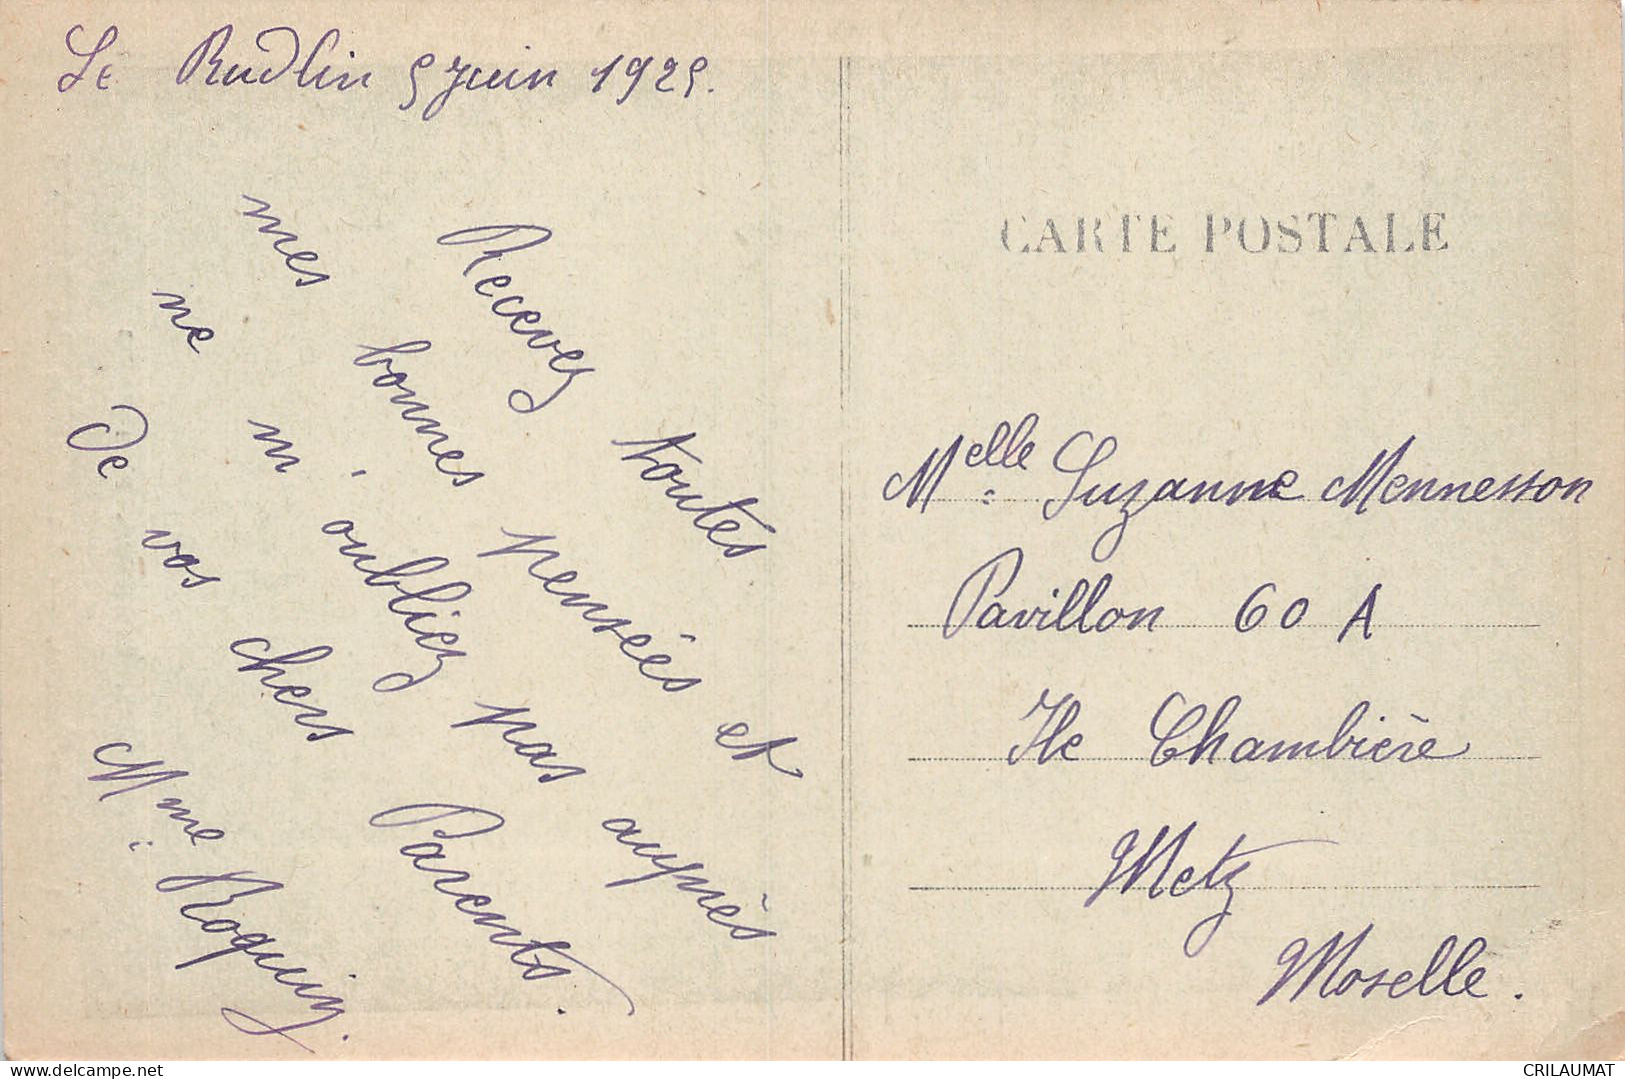 Le Rudlin 5 juin 1925.
Recevez toutes
mes bonnes pensées et
ne m'oubliez pas auprès
de vos chers Parents.
Mme Roquin.
CARTE POSTALE
Melle Suzanne Mennesson
Pavillon 60 A
Ile Chambière
Metz
Moselle.
delcampe.net
CRILAUMAT